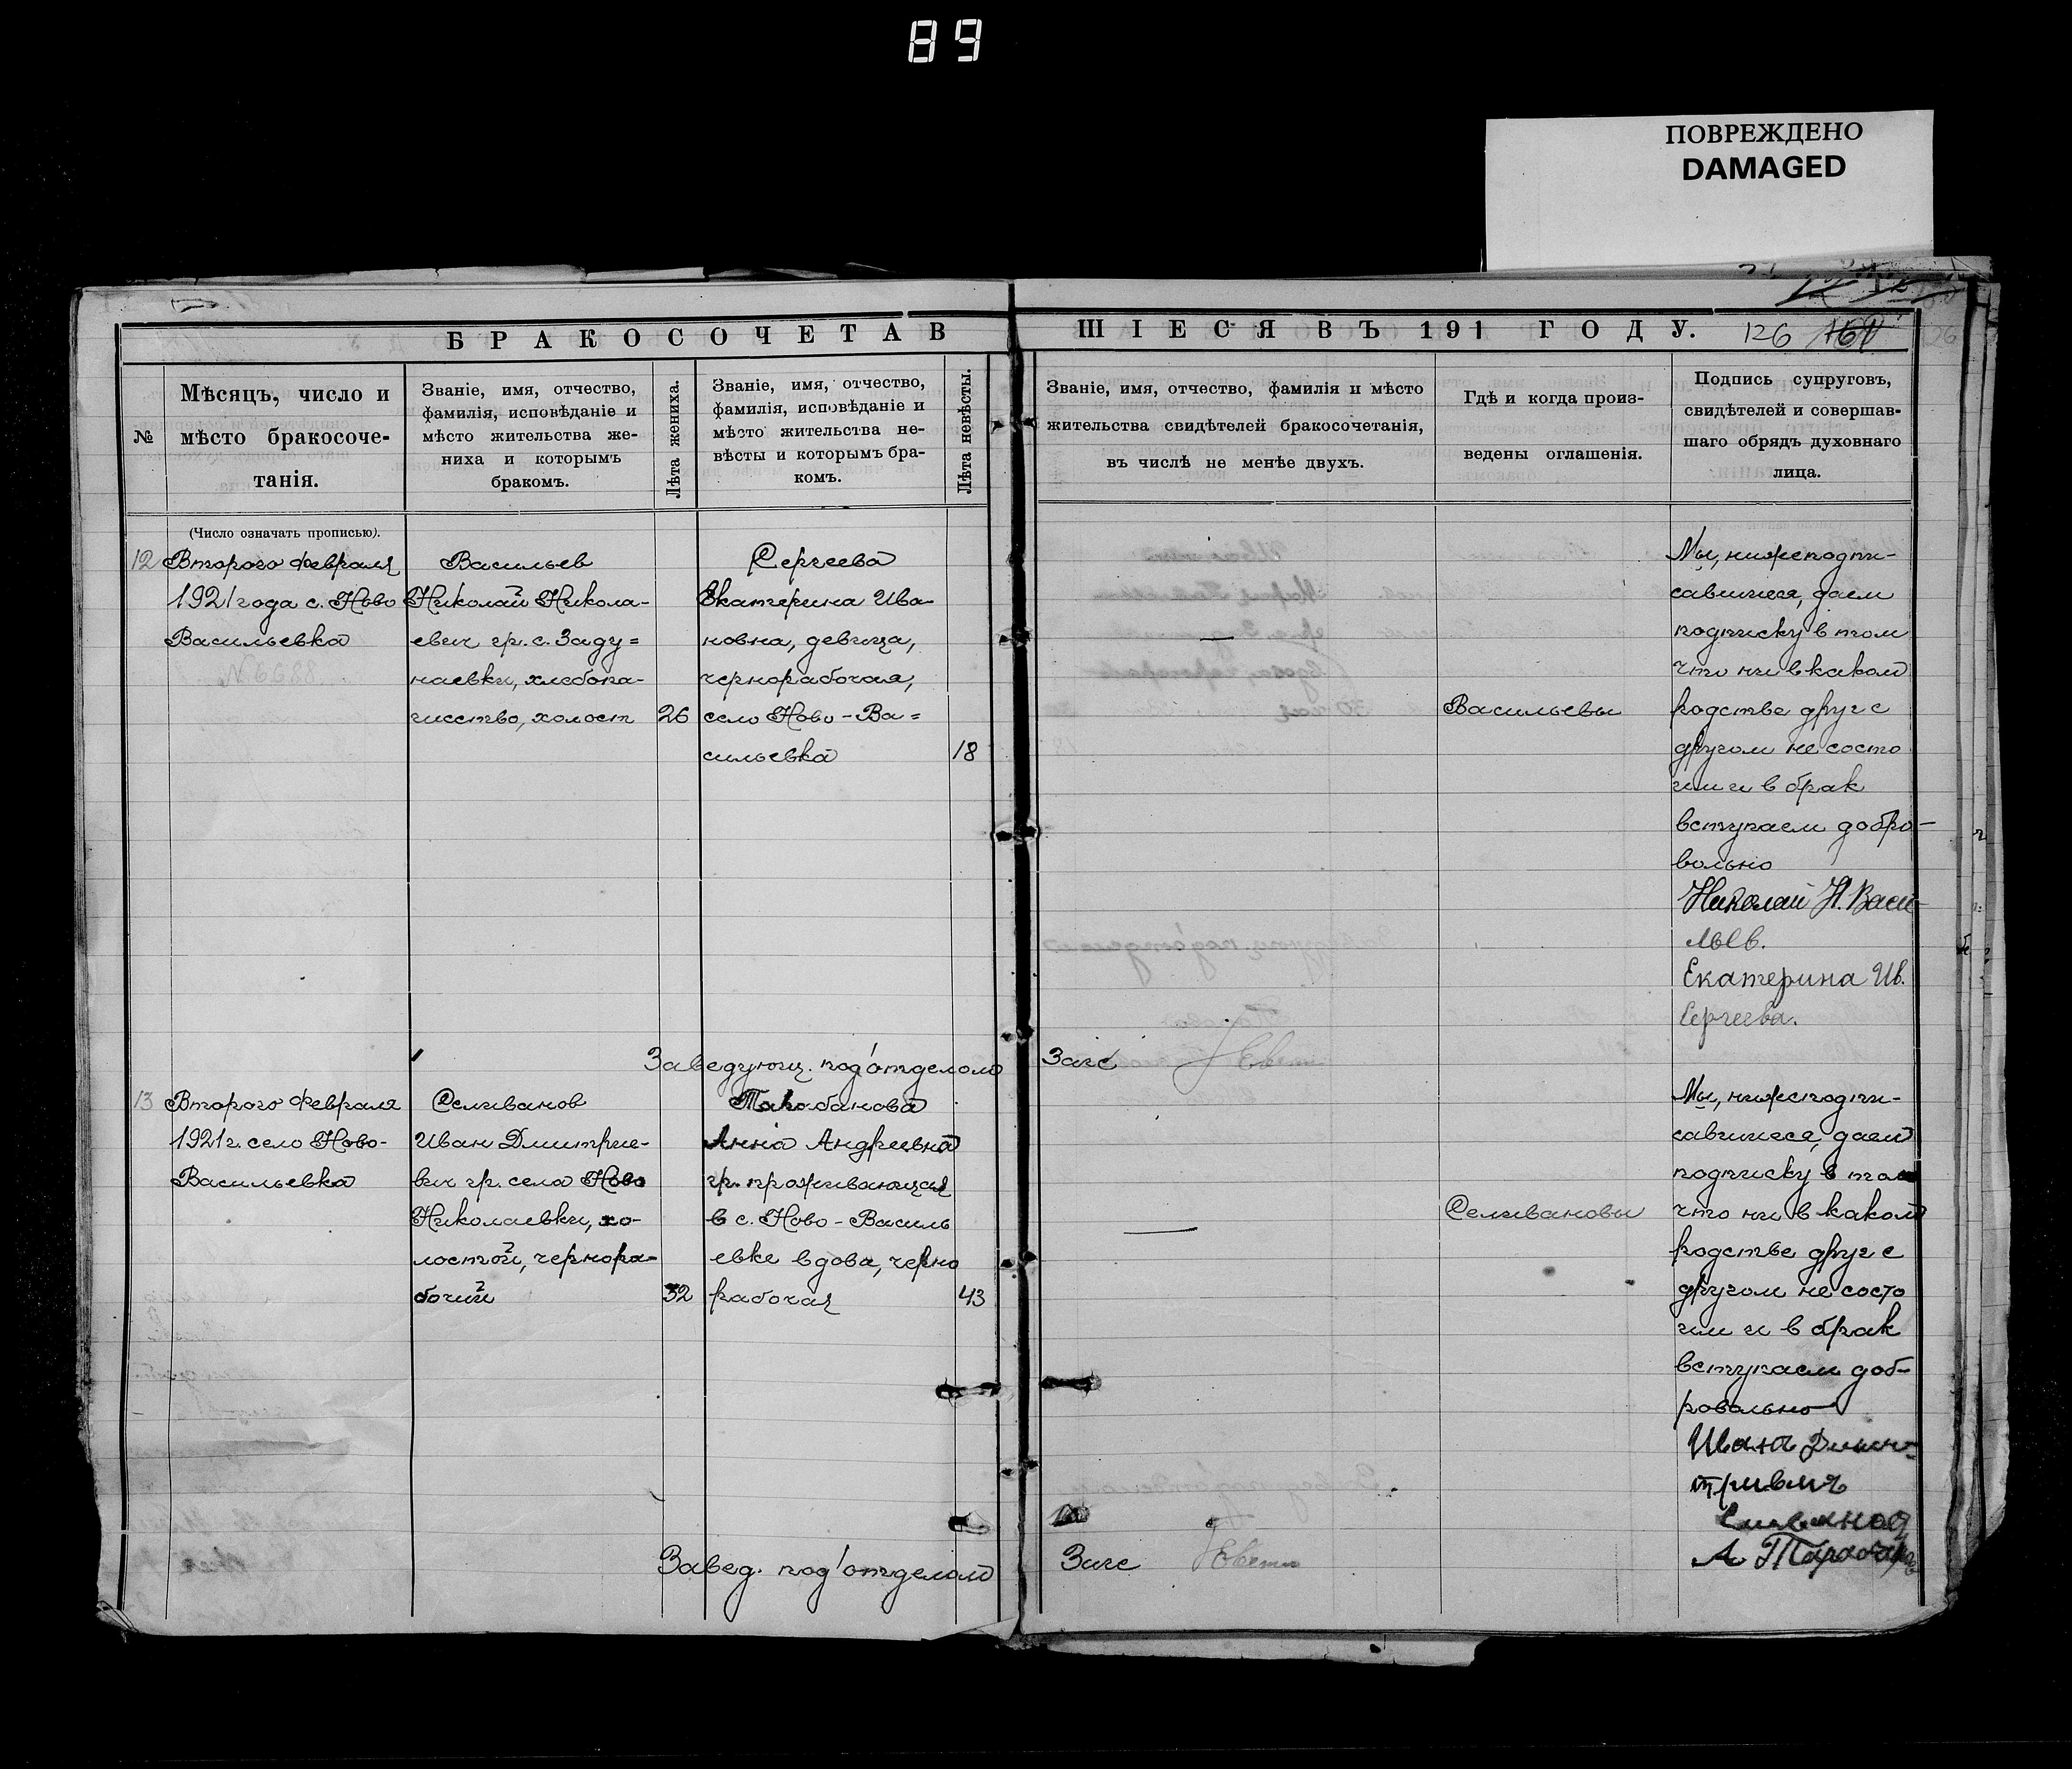 89
ПОВРЕЖДЕНО
DAMAGED
БРАКОСОЧЕТАВ
ШІЕСЯ ВЪ 191 ГОДУ.
126
№
Мѣсяцъ, число и
мѣсто бракосоче-
танія.
Званіе, имя, отчество,
фамилія, исповѣданіе и
мѣсто жительства же-
ниха и которымъ
бракомъ.
Лѣта жениха.
Званіе, имя, отчество,
фамилія, исповѣданіе и
мѣсто жительства не-
вѣсты и которымъ бра-
комъ.
Лѣта невѣсты.
Званіе, имя, отчество, фамилія и мѣсто
жительства свидѣтелей бракосочетанія,
въ числѣ не менѣе двухъ.
Гдѣ и когда произ-
ведены оглашенія.
Подпись супруговъ,
свидѣтелей и совершав-
шаго обрядъ духовнаго
лица.
(Число означать прописью).
12
Второго февраля
1921 года с. Ново
Васильевка
№ 6688
Васильев
Николай Никола-
евич гр. с. Заду=
наевки, хлебопа-
шество, холост
26
Сергеева
Екатерина Ива-
новна, девица,
чернорабочая,
село Ново-Ва=
сильевка
18
Васильевы
Мы, нижеподпи-
савшиеся, даем
подписку в том
что ни в каком
родстве друг с
другом не состо
им и в брак
вступаем добро-
вольно
Николай Н. Васи-
льев.
Екатерина Ив.
Сергеева.
Заведующ. под'отделом
Загс
13
Второго февраля
1921 г. село Ново-
Васильевка
Селиванов
Иван Дмитрие-
вич гр. села Ново
Николаевки, хо-
лостой, чернора-
бочий
32
Анна Андреевна
гр. проживающая
в с. Ново-Василь
евке вдова, черно
рабочая
43
Селивановы
Мы, нижеподпи-
савшиеся, даем
подписку в том
что ни в каком
родстве друг с
другом не состо
им и в брак
вступаем доб-
ровольно
Завед. под'отделом
Загс